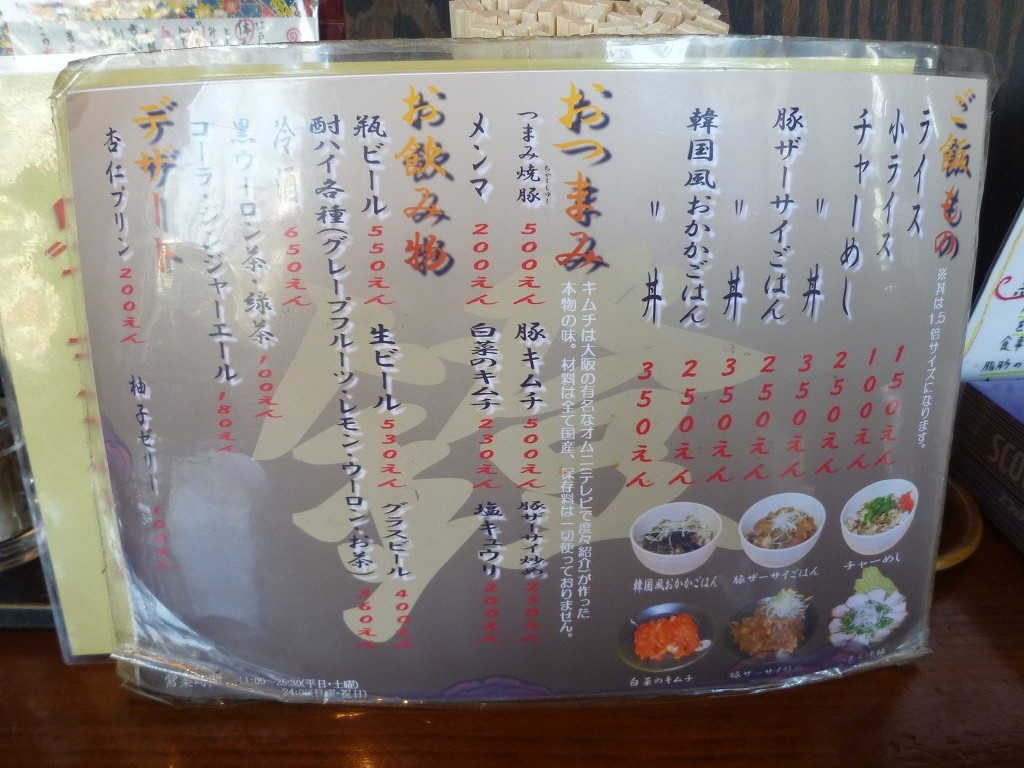 ご飯もの
※丼は1.5倍サイズになります。
ライス 150えん
小ライス 100えん
チャーめし 250えん
〃 丼 350えん
豚ザーサイごはん 250えん
〃 丼 350えん
韓国風おかかごはん 250えん
〃 丼 350えん
おつまみ
キムチは大阪の有名なオム二テレビで度々紹介)が作った
本物の味。材料は全て国産、保存料は一切使っておりません。
つまみ焼豚 500えん 豚キムチ 500えん 豚ザーサイ炒め 250えん
ちゃーしゅー
メンマ 200えん 白菜のキムチ 230えん 塩キュウリ 200えん
お飲み物
瓶ビール 550えん 生ビール 530えん グラスビール 400えん
酎ハイ各種(グレープフルーツ・レモン・ウーロン・お茶) 360えん
冷酒 650えん
黒ウーロン茶・緑茶 100えん
コーラ・ジンジャーエール 180えん
デザート
杏仁プリン 200えん 柚子ゼリー 100えん
チャーめし
豚ザーサイごはん
韓国風おかかごはん
豚ザーサイ
白菜のキムチ
営業時間…11:00〜25:30(平日・土曜)
24:00(日曜・祝日)
SCO